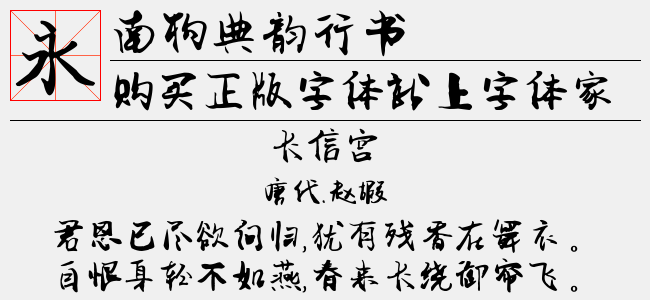 永
南构典韵行书
购买正版字体就上字体家
长信宫
唐代.赵嘏
君恩已尽欲何归,犹有残香在舞衣。
自恨身轻不如燕,春来长绕御帘飞。